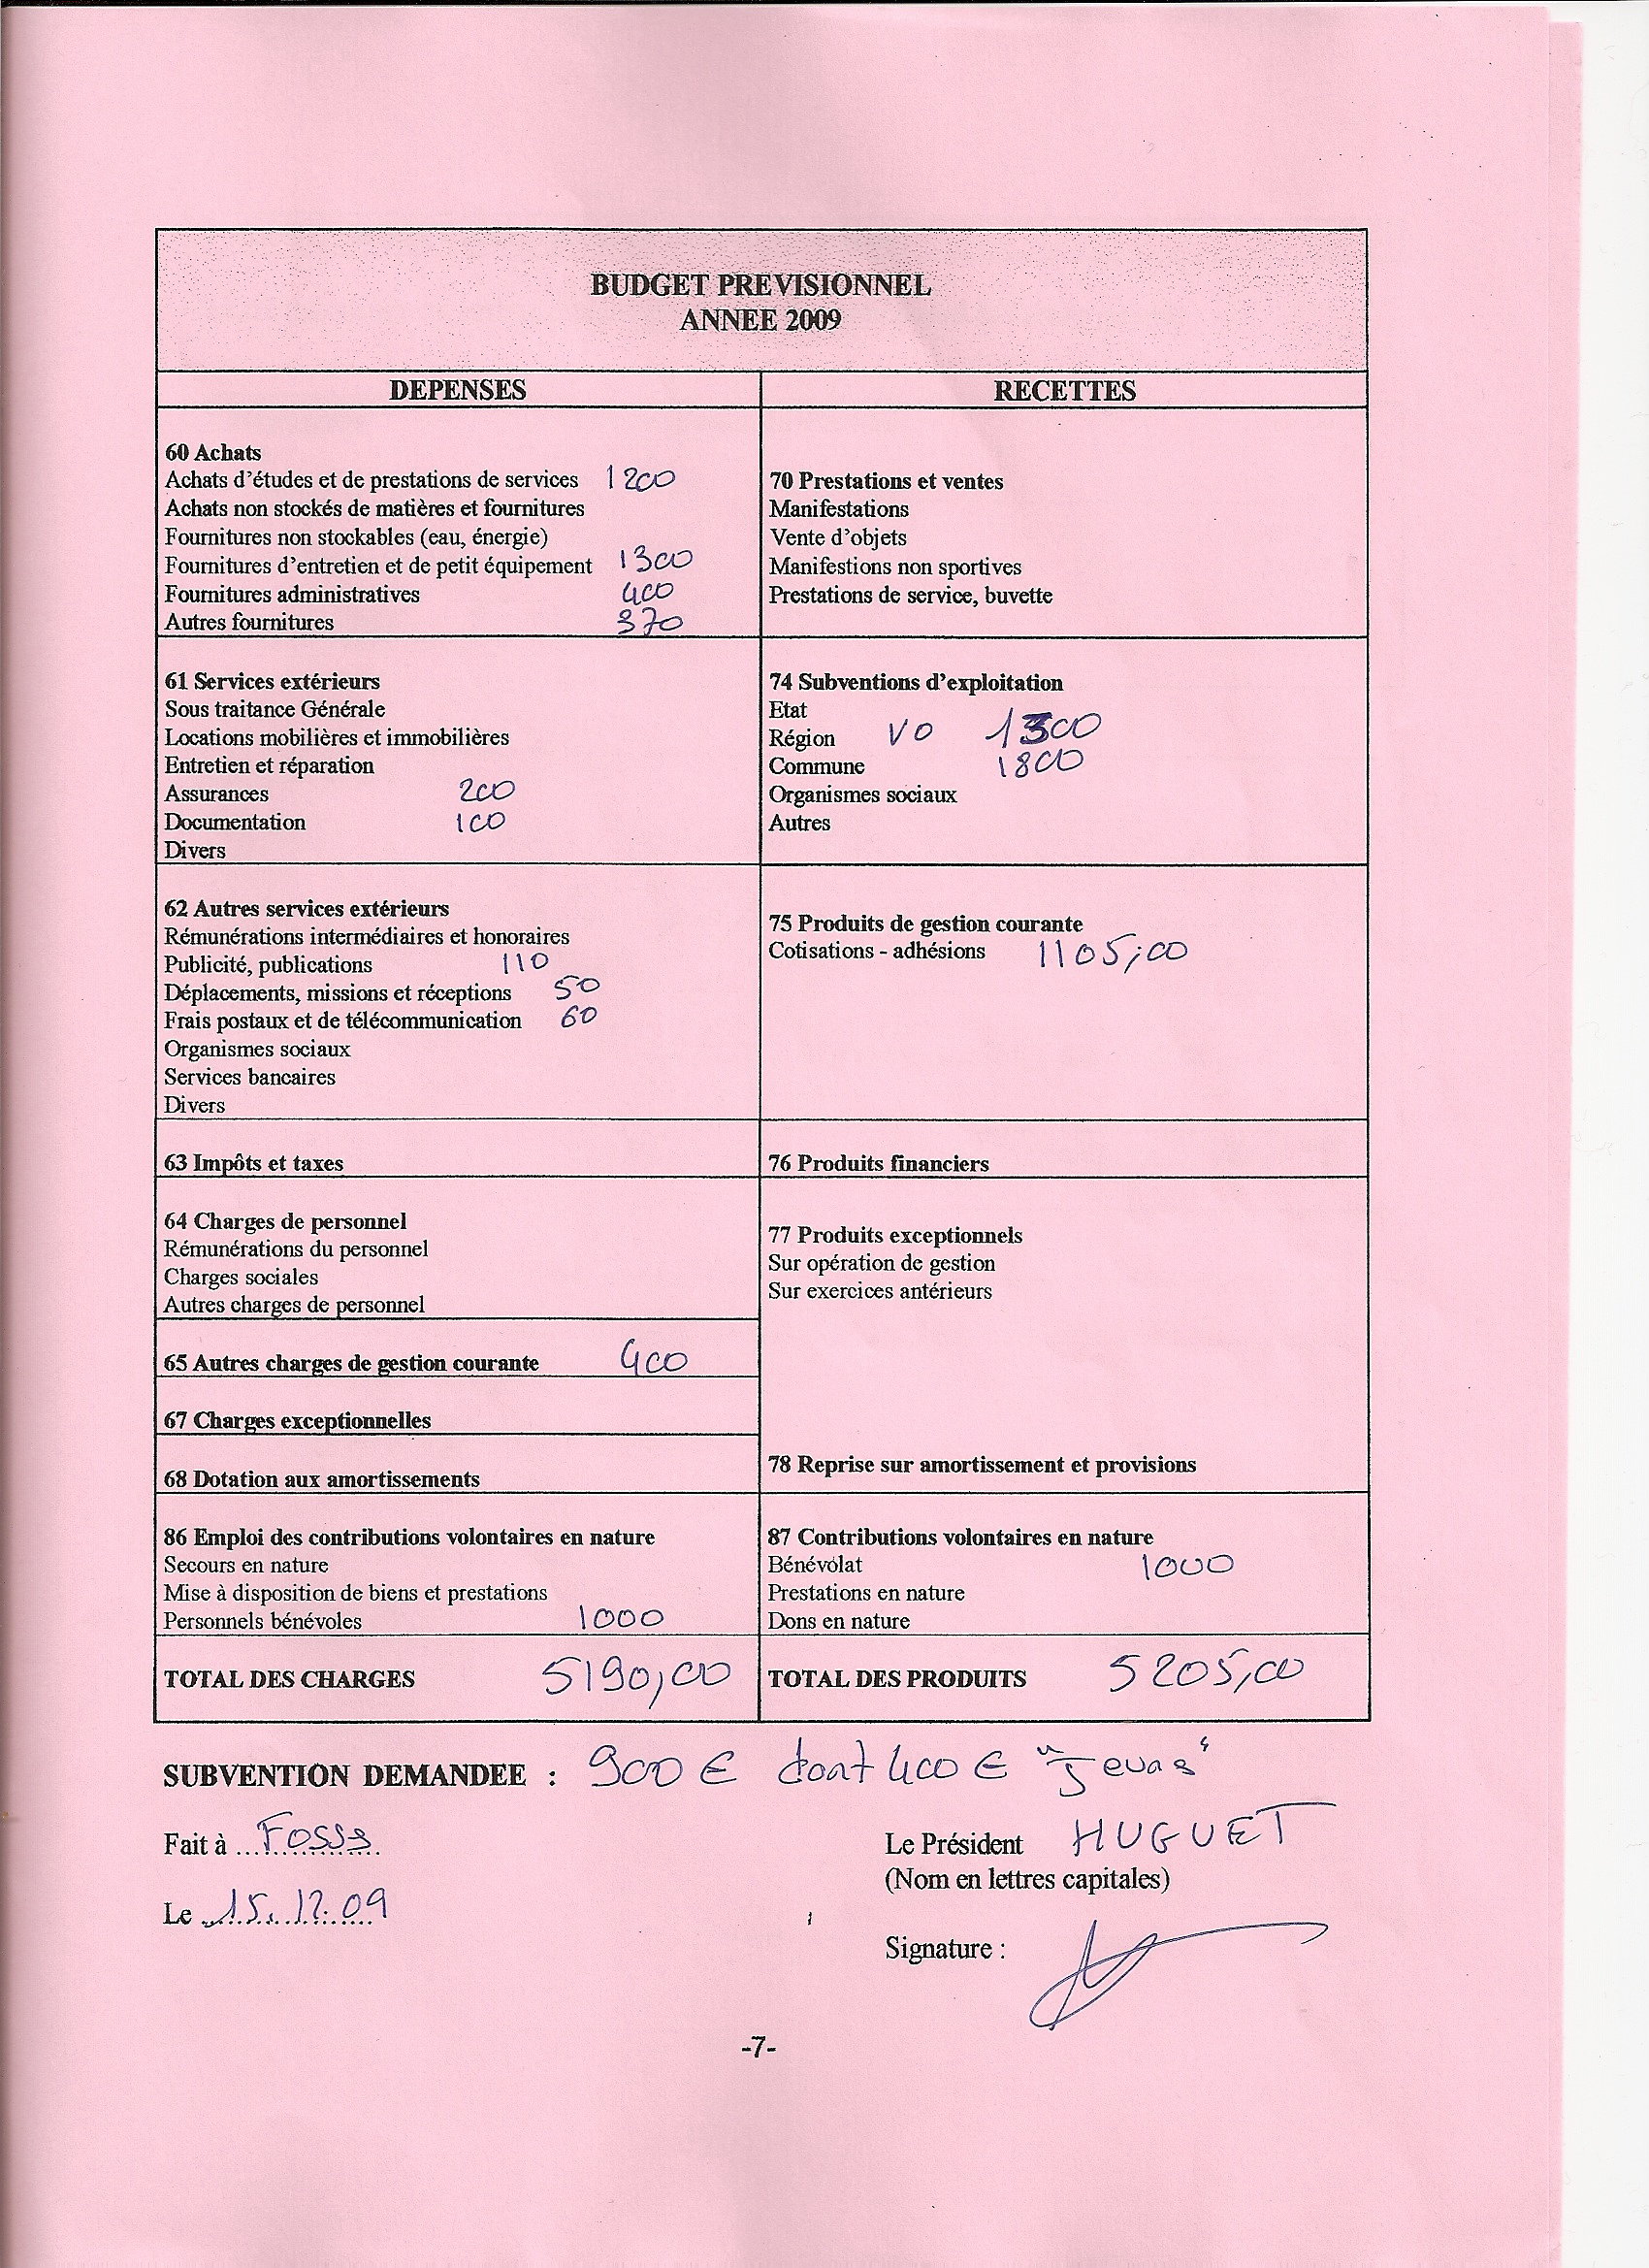 BUDGET PREVISIONNEL
ANNEE 2009
DEPENSES
RECETTES
60 Achats
Achats d'études et de prestations de services 1200
Achats non stockés de matières et fournitures
Fournitures non stockables (eau, énergie)
Fournitures d'entretien et de petit équipement 1300
Fournitures administratives 400
Autres fournitures 370
70 Prestations et ventes
Manifestations
Vente d'objets
Manifestions non sportives
Prestations de service, buvette
61 Services extérieurs
Sous traitance Générale
Locations mobilières et immobilières
Entretien et réparation
Assurances 200
Documentation 100
Divers
74 Subventions d'exploitation
Etat
Région VO 1300
Commune 1800
Organismes sociaux
Autres
62 Autres services extérieurs
Rémunérations intermédiaires et honoraires
Publicité, publications 110
Déplacements, missions et réceptions 50
Frais postaux et de télécommunication 60
Organismes sociaux
Services bancaires
Divers
75 Produits de gestion courante
Cotisations - adhésions 1105,00
63 Impôts et taxes
76 Produits financiers
64 Charges de personnel
Rémunérations du personnel
Charges sociales
Autres charges de personnel
77 Produits exceptionnels
Sur opération de gestion
Sur exercices antérieurs
65 Autres charges de gestion courante 400
67 Charges exceptionnelles
68 Dotation aux amortissements
78 Reprise sur amortissement et provisions
86 Emploi des contributions volontaires en nature
Secours en nature
Mise à disposition de biens et prestations
Personnels bénévoles 1000
87 Contributions volontaires en nature
Bénévolat 1000
Prestations en nature
Dons en nature
TOTAL DES CHARGES 5190,00
TOTAL DES PRODUITS 5205,00
SUBVENTION DEMANDEE : 900 € dont 400 €
Fait à Fosses
Le Président HUGUET
(Nom en lettres capitales)
Le 15.12.09
Signature :
-7-